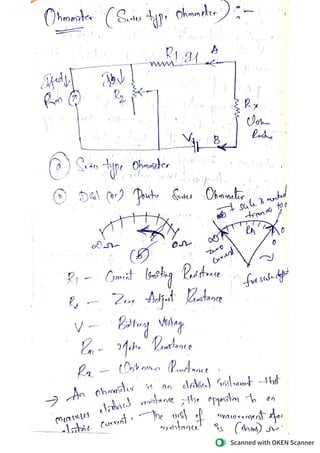 Ohmmeter (Series type Ohmmeter) :-
R1 A
Rm R2 Rx
Unkn
V B
(a) Series type Ohmmeter
Dial (or) Pointer Series Ohmmeter
scale is marked
from
∞Ω 0Ω
∞ Rh 0
Zero
Current
(b)
R1 - Current Limiting Resistance
R2 - Zero Adjust Resistance
V - Battery Voltage
Rm - Meter Resistance
Rx - Unknown Resistance.
→ An ohmmeter is an electrical instrument that
measures electrical resistance, the opposition to an
electric current. The unit of measurement for
resistance is (ohms) Ω.
Scanned with OKEN Scanner